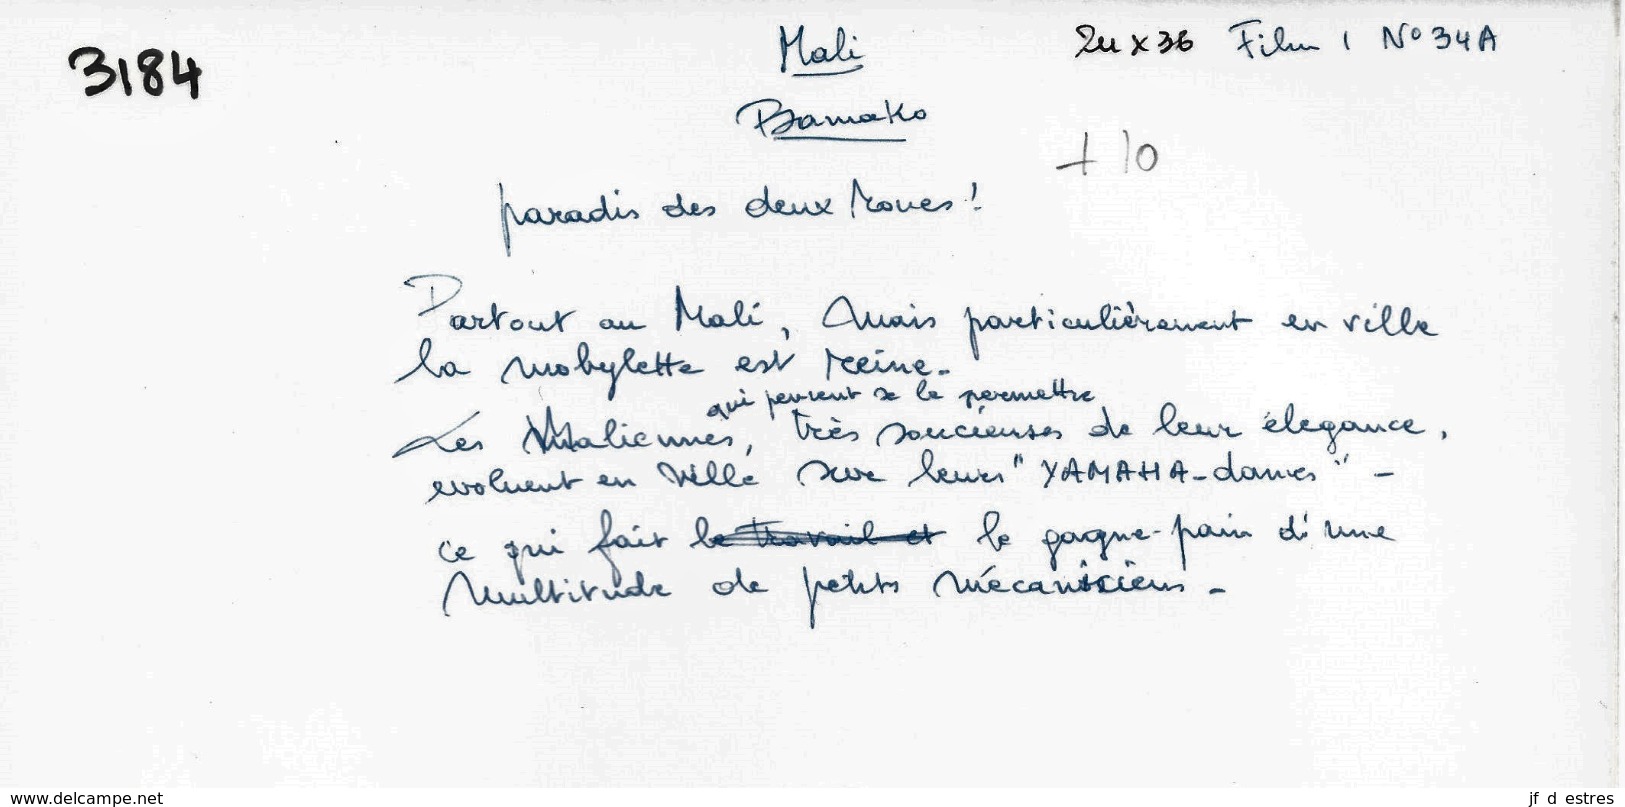 3184
Mali
24 x 36 Film 1 N° 34A
Bamako
+ 10
paradis des deux roues !
Partout au Mali, mais particulièrement en ville
la mobylette est reine.
qui peuvent se le permettre
Les Maliennes, très soucieuses de leur élegance,
evoluent en ville sur leurs "YAMAHA-dames" -
ce qui fait le travail et le gagne-pain d'une
multitude de petits mécaniciens -
www.delcampe.net
jf d estres